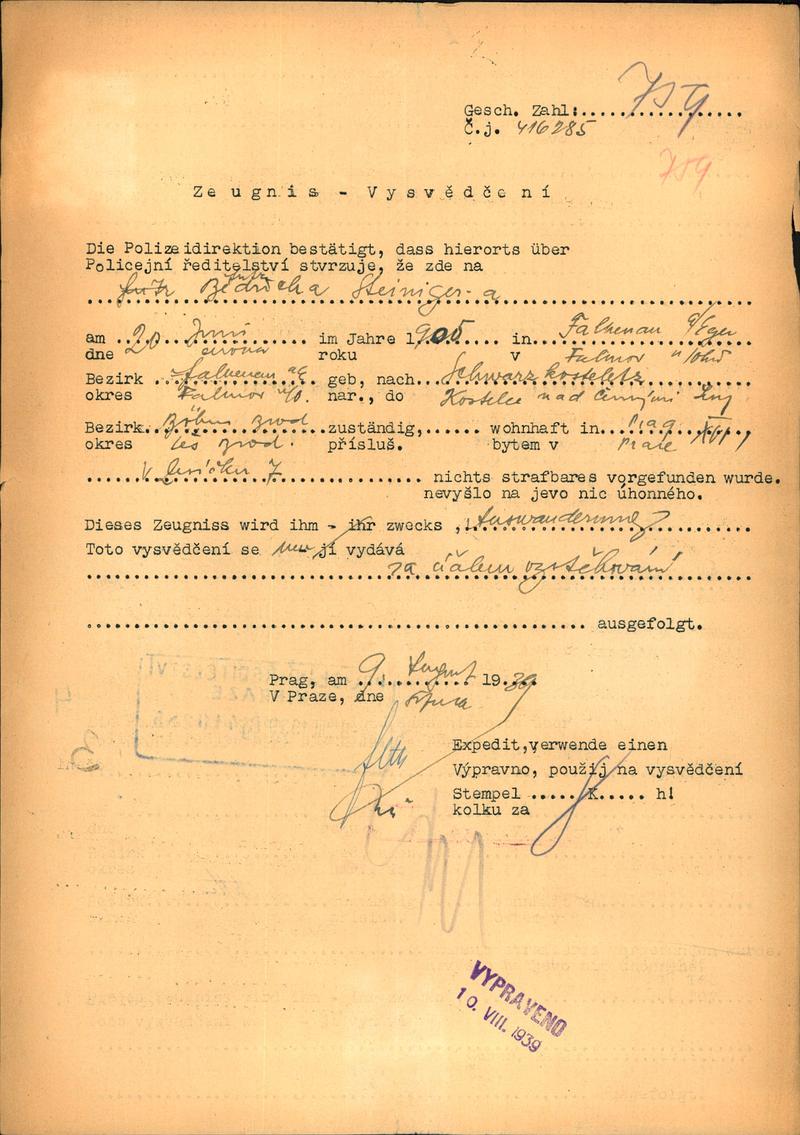 Gesch. Zahl:
Č.j. 416285
Zeugnis - Vysvědčení
Die Polizeidirektion bestätigt, dass hierorts über
Policejní ředitelství stvrzuje, že zde na
Bedřicha Steiniger-a
am 20 Juni im Jahre 1905 in Falkenau a/Eger
dne 20 června roku v Falknov n/Ohří
Bezirk Falkenau a/E geb, nach Schwarzkosteletz
okres Falknov n/O. nar., do Kostelec nad Černými lesy
Bezirk Böhm Brod zuständig, wohnhaft in Prag XVI
okres Čes Brod. přísluš. bytem v Praze
7 nichts strafbares vorgefunden wurde.
nevyšlo na jevo nic úhonného.
Dieses Zeugniss wird ihm - ihr zwecks Auswanderung
Toto vysvědčení se mu jí vydává
za účelem vystěhování
ausgefolgt.
Prag, am 9. August 1939
V Praze, dne srpna
Expedit, verwende einen
Výpravno, použij na vysvědčení
Stempel K h!
kolku za
VYPRAVENO
10. VIII. 1939